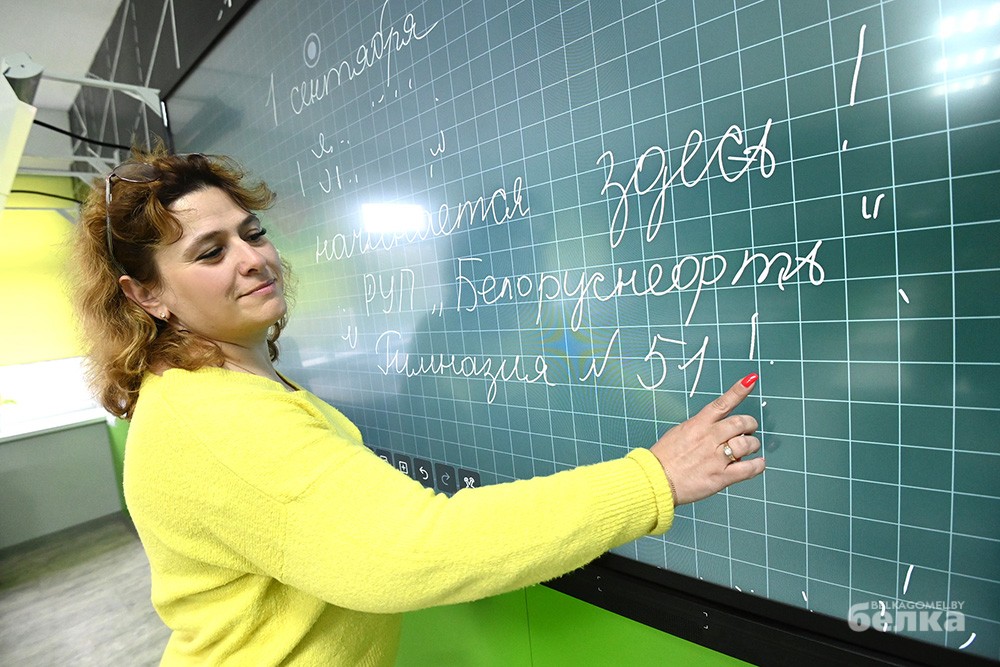 1 сентября
начинается здесь!
РУП „Белоруснефть"
Гимназия N 51!
BELKAGOMEL.BY
белка